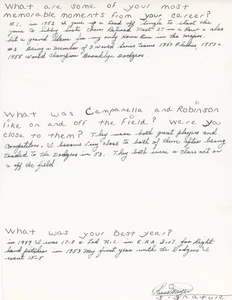 What are some of your most
memorable moments from your career?
#1. in 1952 I gave up a lead off single to start the
game to Solly then Retired Next 27 in a Row & also
hit a grand slam for my only home run in the majors
#2 Being a member of 3 world Series Teams 1950 Phillies 1953 +
1955 World Champion Brooklyn Dodgers.
What was Campanella and Robinson
like on and off the field? Were you
close to them? They were both great players and
competitors. I became very close to both of them after being
traded to the Dodgers in 53. They both were a class act on
& off the field
What was your best year?
in 1949 I was 17-8 & Led N.L. in E.R.A. for Right
hand pitchers in 1953 My first year with the Dodgers I
went 15-5
Signature